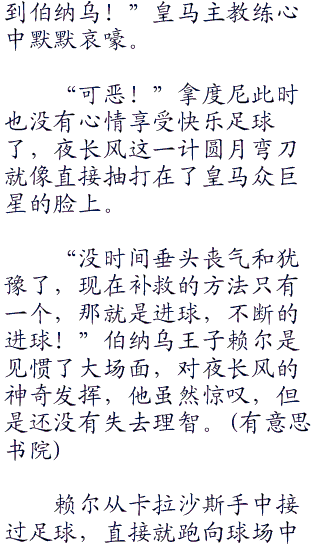 到伯纳乌！”皇马主教练心
中默默哀嚎。
“可恶！”拿度尼此时
也没有心情享受快乐足球
了，夜长风这一计圆月弯刀
就像直接抽打在了皇马众巨
星的脸上。
“没时间垂头丧气和犹
豫了，现在补救的方法只有
一个，那就是进球，不断的
进球！”伯纳乌王子赖尔是
见惯了大场面，对夜长风的
神奇发挥，他虽然惊叹，但
是还没有失去理智。(有意思
书院)
赖尔从卡拉沙斯手中接
过足球，直接就跑向球场中